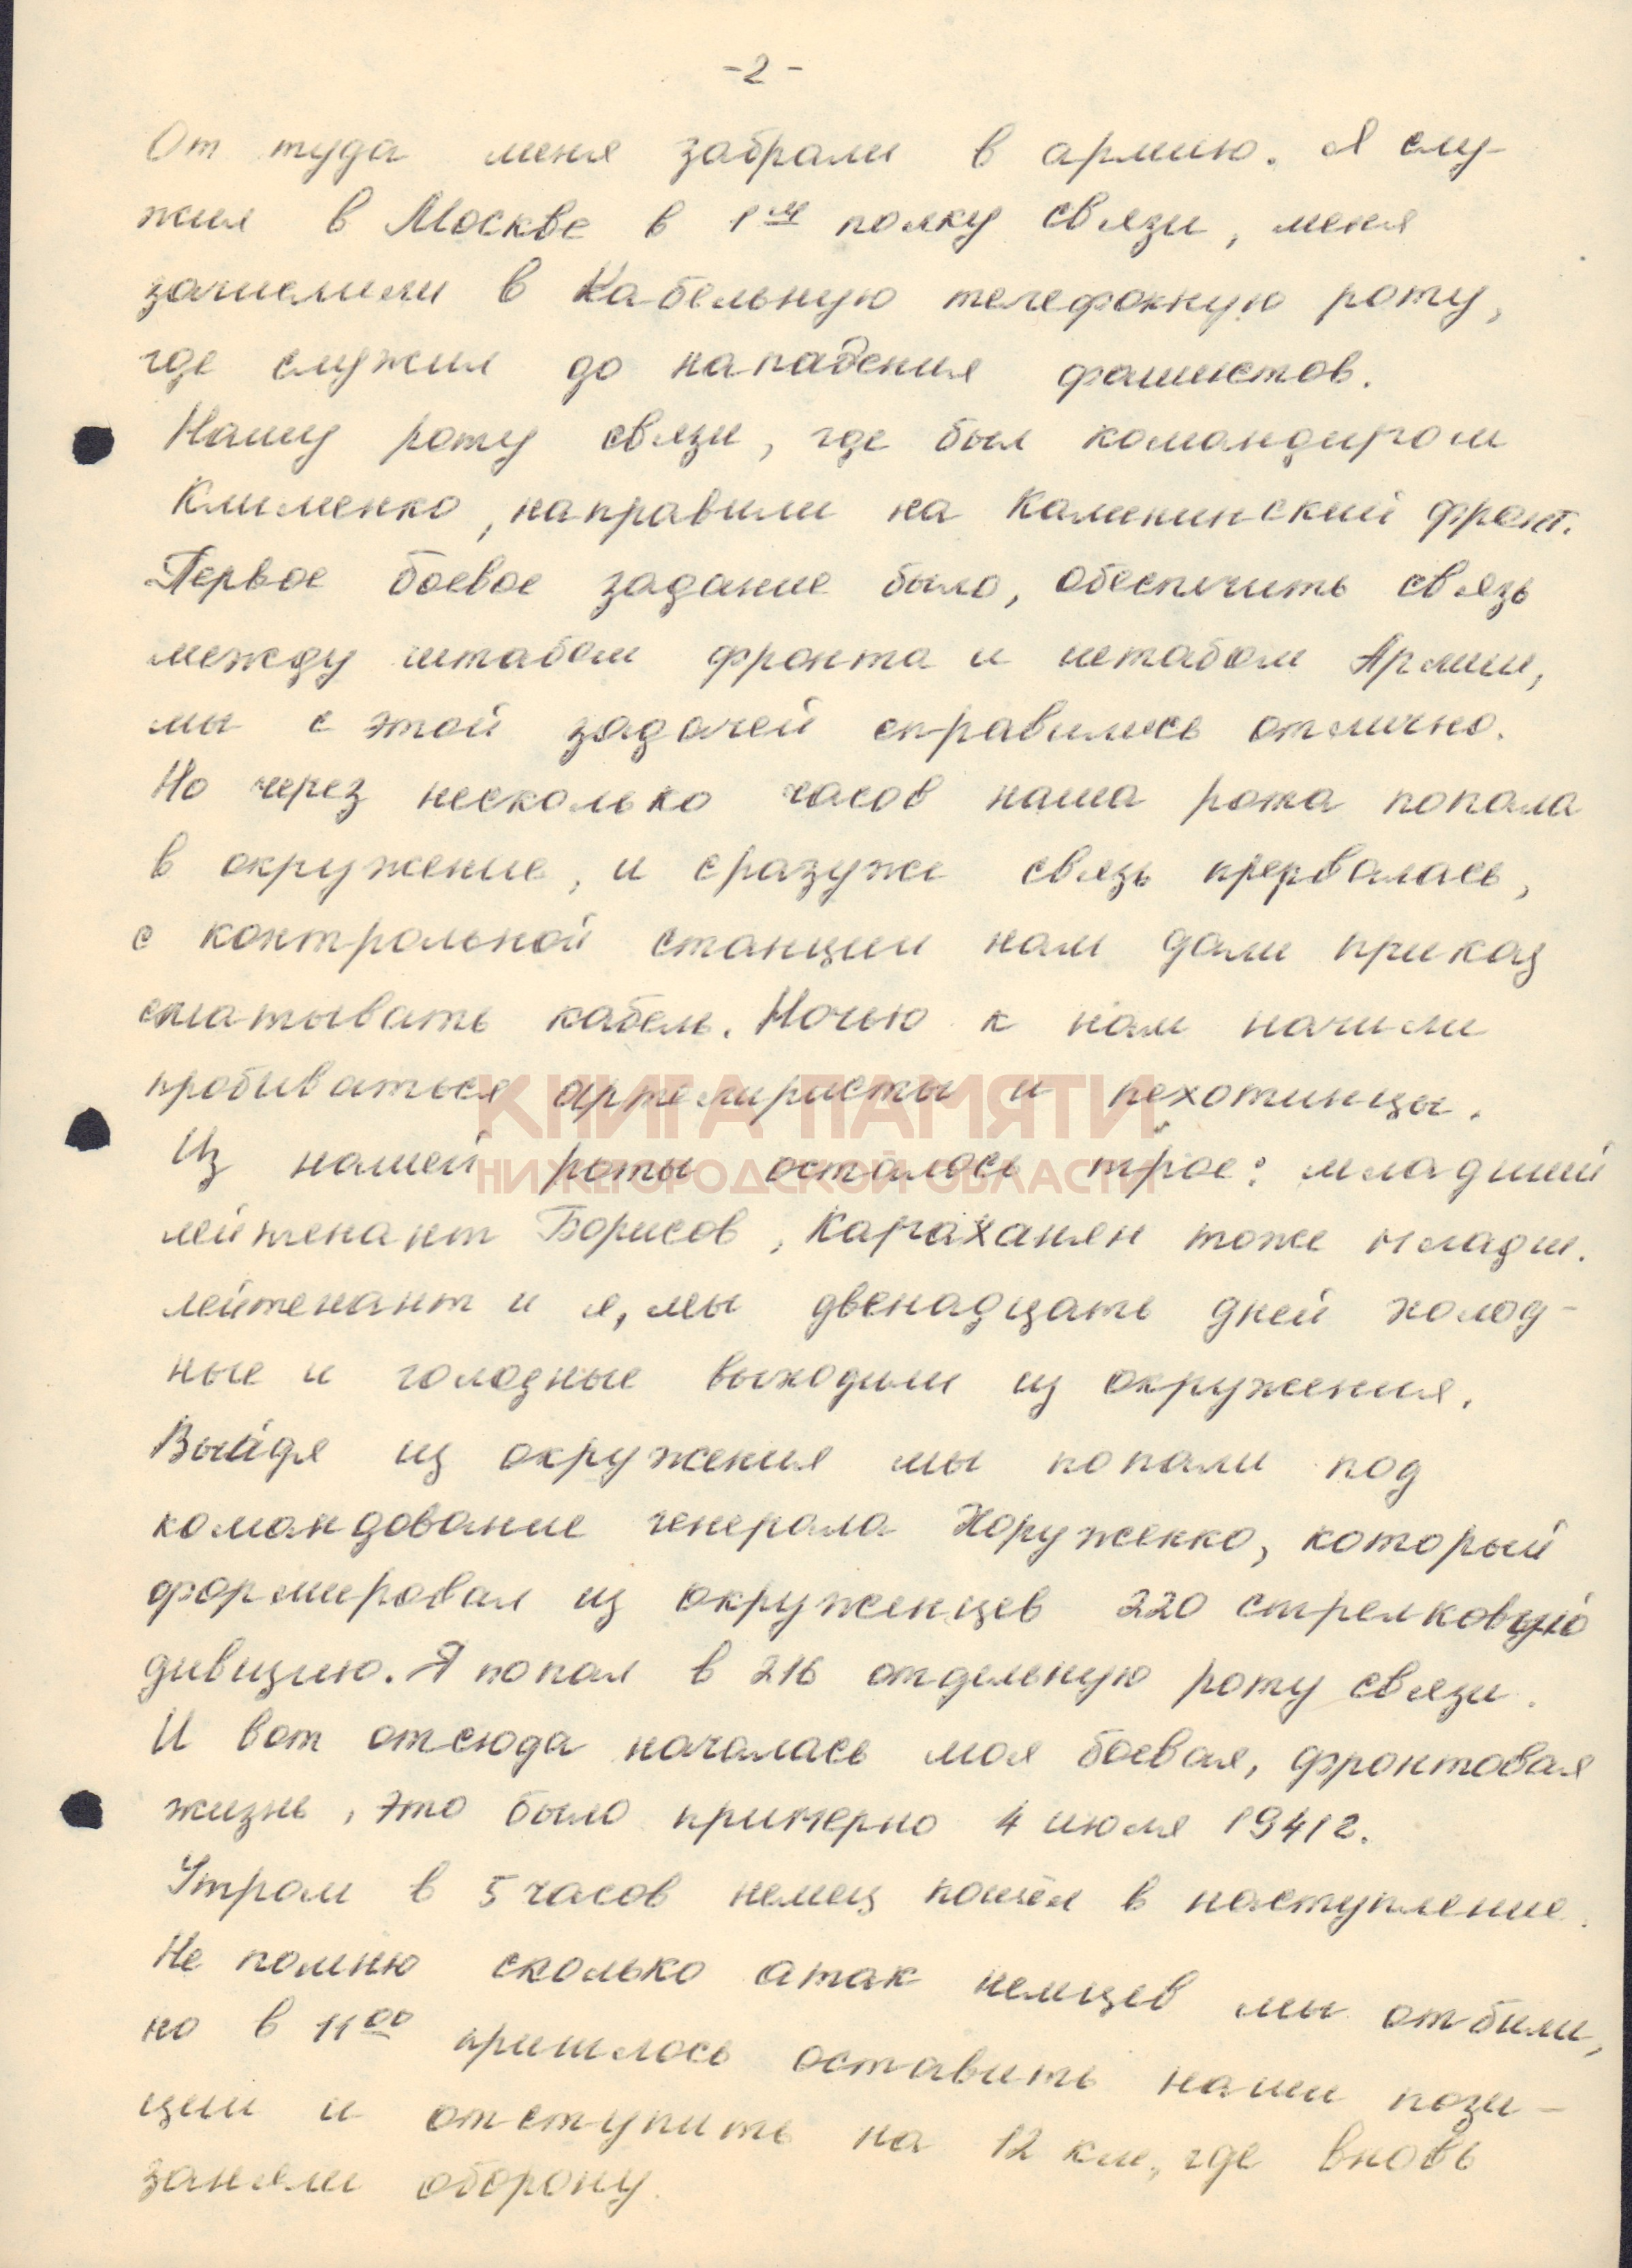 -2-
От туда меня забрали в армию. Я слу-
жил в Москве в 1м полку связи, меня
зачислили в Кабельную телефонную роту,
где служил до нападения фашистов.
Нашу роту связи, где был командиром
Клименко, направили на Калининский фронт.
Первое боевое задание было, обеспечить связь
между штабом фронта и штабом Армии,
мы с этой задачей справились отлично.
Но через несколько часов наша рота попала
в окружение, и сразуже связь прервалась,
с контрольной станции нам дали приказ
сматывать кабель. Ночью к нам начали
пробиваться артелиристы и пехотинцы.
КНИГА ПАМЯТИ
Из нашей роты осталось трое: младший
НИЖЕГОРОДСКОЙ ОБЛАСТИ
лейтенант Борисов, Караханян тоже младш.
лейтенант и я, мы двенадцать дней холод-
ные и голодные выходили из окружения.
Выйдя из окружения мы попали под
командование генерала Хоруженко, который
формировал из окруженцев 220 стрелковую
дивизию. Я попал в 216 отдельную роту связи.
И вот отсюда началась моя боевая, фронтовая
жизнь, это было примерно 4 июля 1941г.
Утром в 5 часов немец пошёл в наступление.
Не помню сколько атак немцев мы отбили,
но в 1100 пришлось оставить наши пози-
ции и отступить на 12 км, где вновь
заняли оборону.